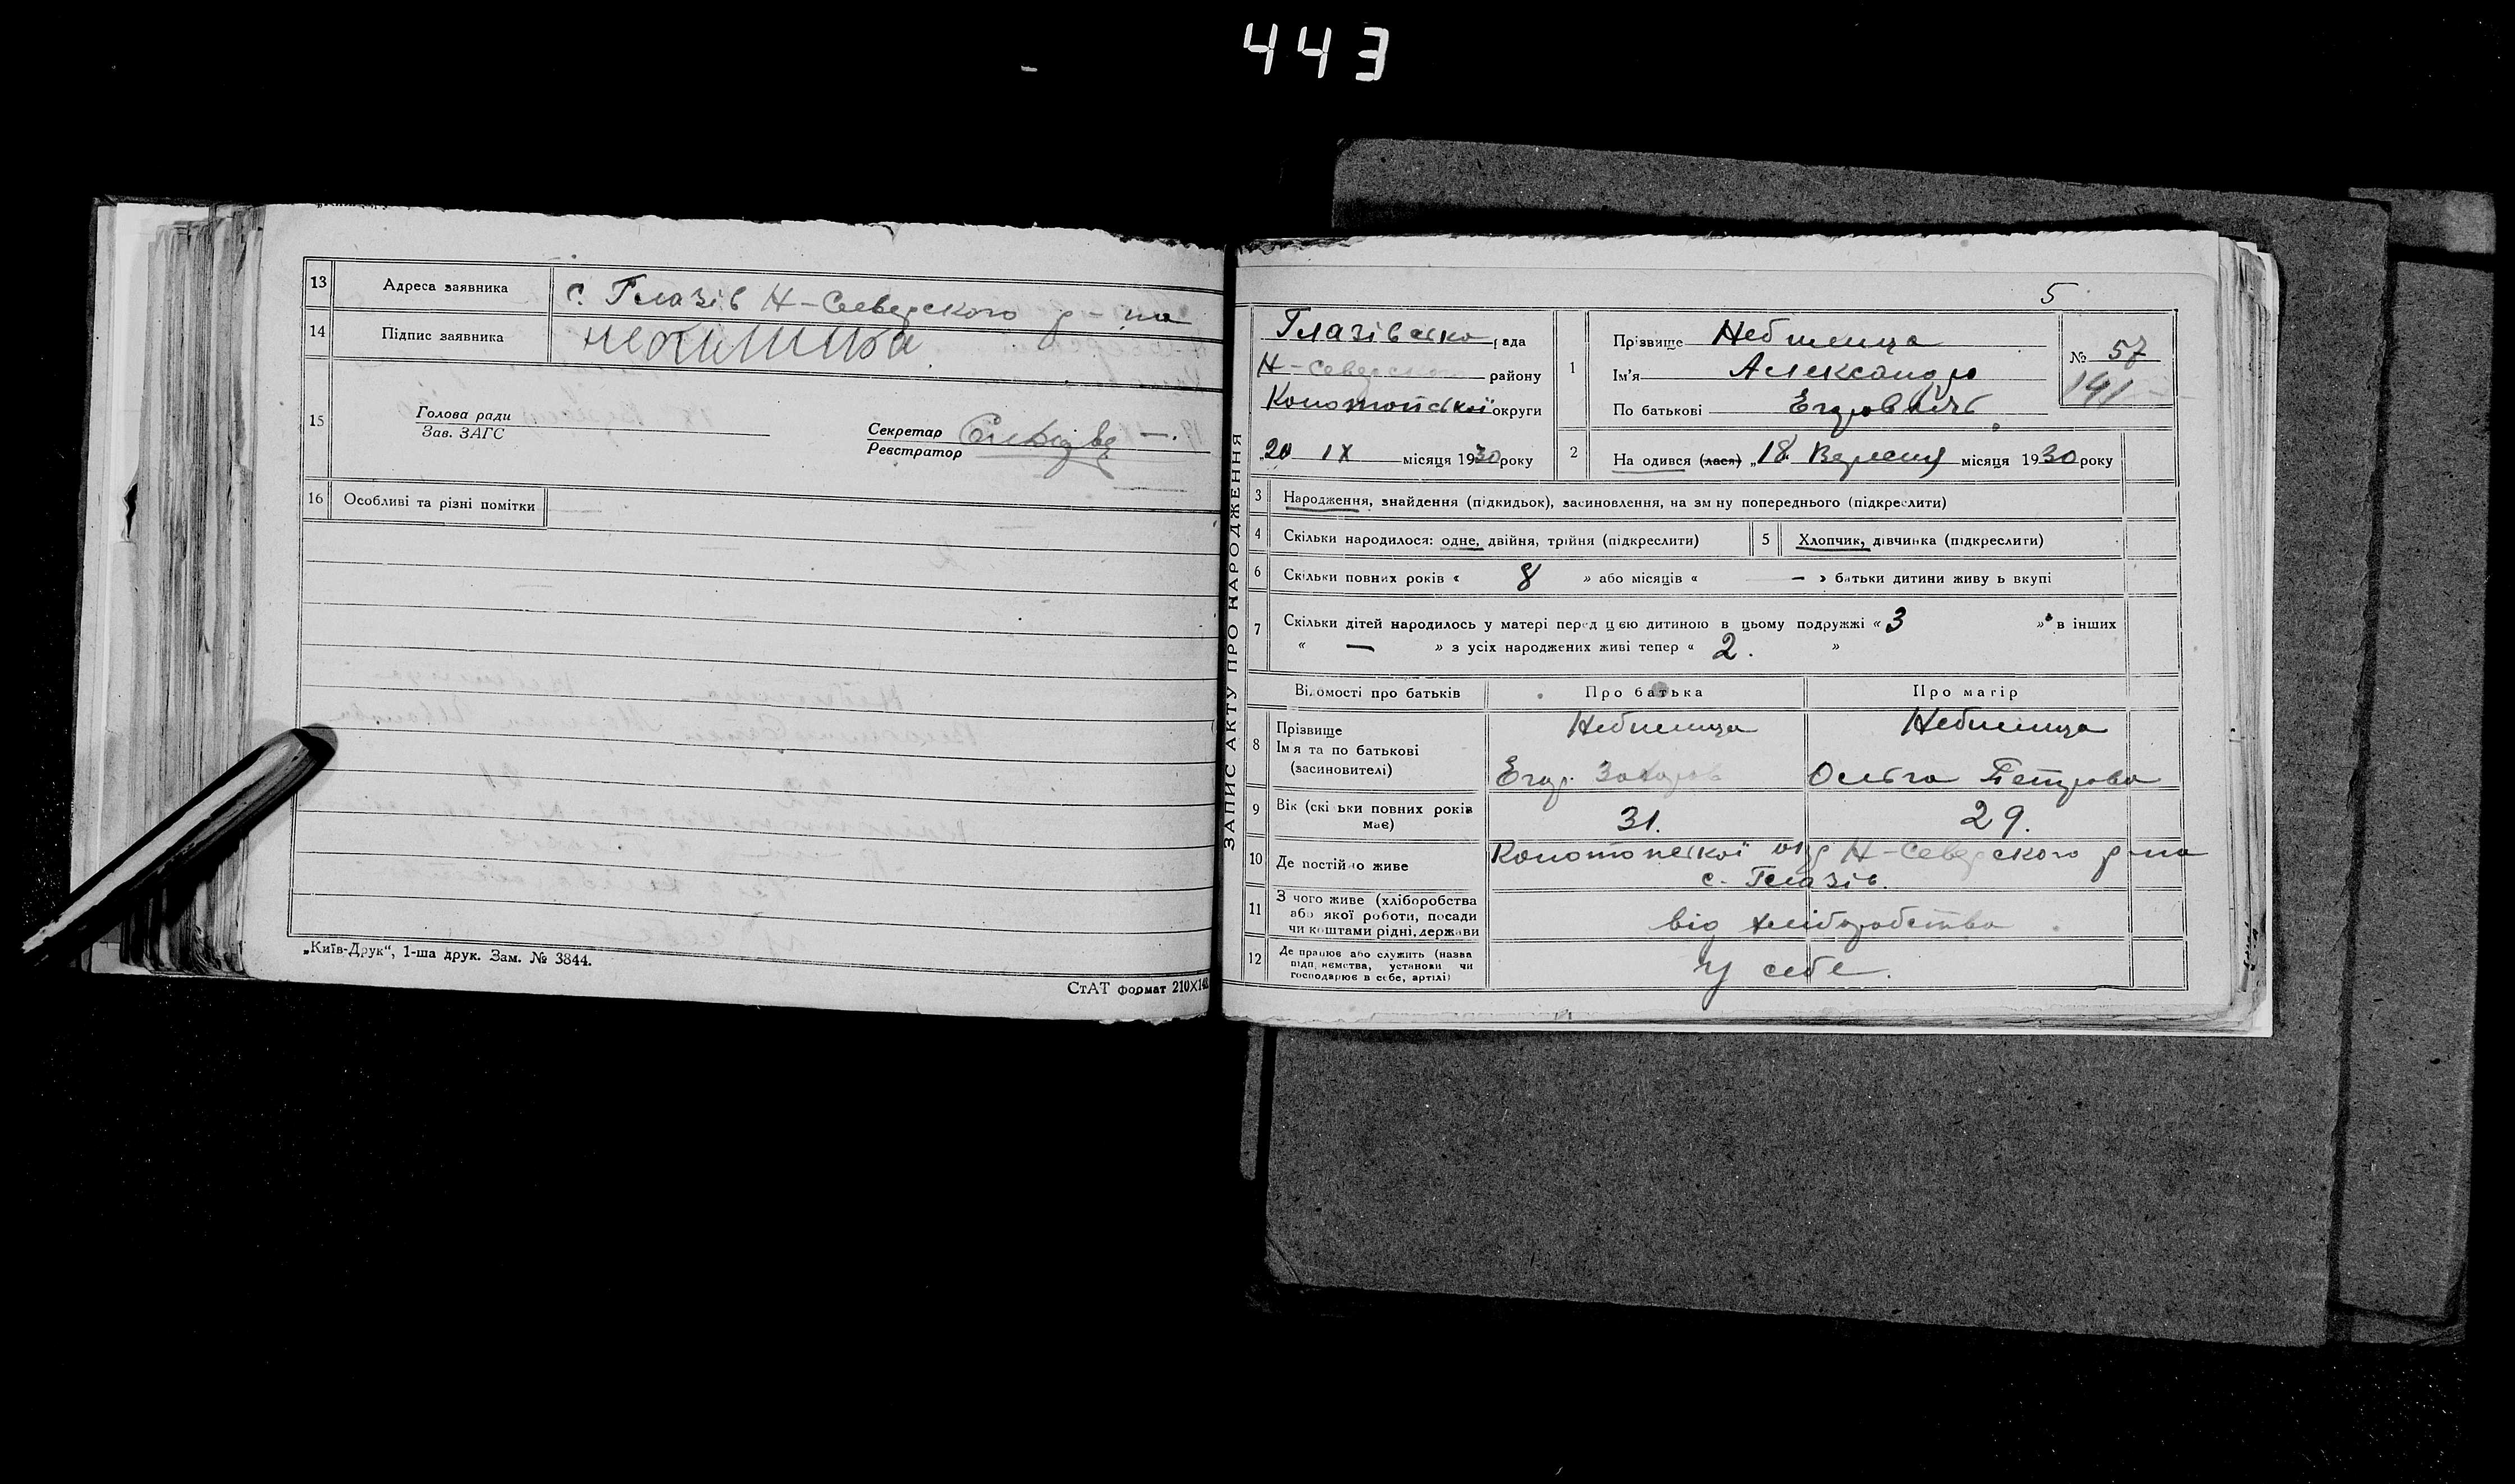 443
13 Адреса заявника с. Глазів Н-Северского р-на
14 Підпис заявника
15 Голова ради
Зав. ЗАГС
Секретар
Реєстратор
16 Особливі та різні помітки
„Київ-Друк“, 1-ша друк. Зам. № 3844.
СтАТ формат 210Х14
5
ЗАПИС АКТУ ПРО НАРОДЖЕННЯ
Глазівська рада
Н-Северского району
Конотопської округи
„20 IX місяця 1930 року
1 Прізвище
Ім'я Александр
По батькові Егорович
№ 57
141
2 На одився (лася) „18 Вересня місяця 1930 року
3 Народження, знайдення (підкидьок), засиновлення, на зм ну попереднього (підкреслити)
4 Скільки народилося: одне, двійня, трійня (підкреслити)
5 Хлопчик, дівчинка (підкреслити)
6 Скільки повних років « 8 » або місяців « — » батьки дитини живу ь вкупі
7 Скільки дітей народилось у матері перед цією дитиною в цьому подружжі « 3 » в інших
« — » з усіх народжених живі тепер « 2. »
Відомості про батьків Про батька Про матір
8 Прізвище
Ім я та по батькові
(засиновителі)
Егор. Захаров Ольга Петрова
9 Вік (скі ьки повних років
має)
31. 29.
10 Де постійно живе Конотопської окр Н-Северского р-на
с. Глазів.
11 З чого живе (хліборобства
або якої роботи, посади
чи коштами рідні, держави
від хліборобства
12 Де працює або служить (назва
підп иємства, установи чи
господарює в себе, артілі)
у себе.